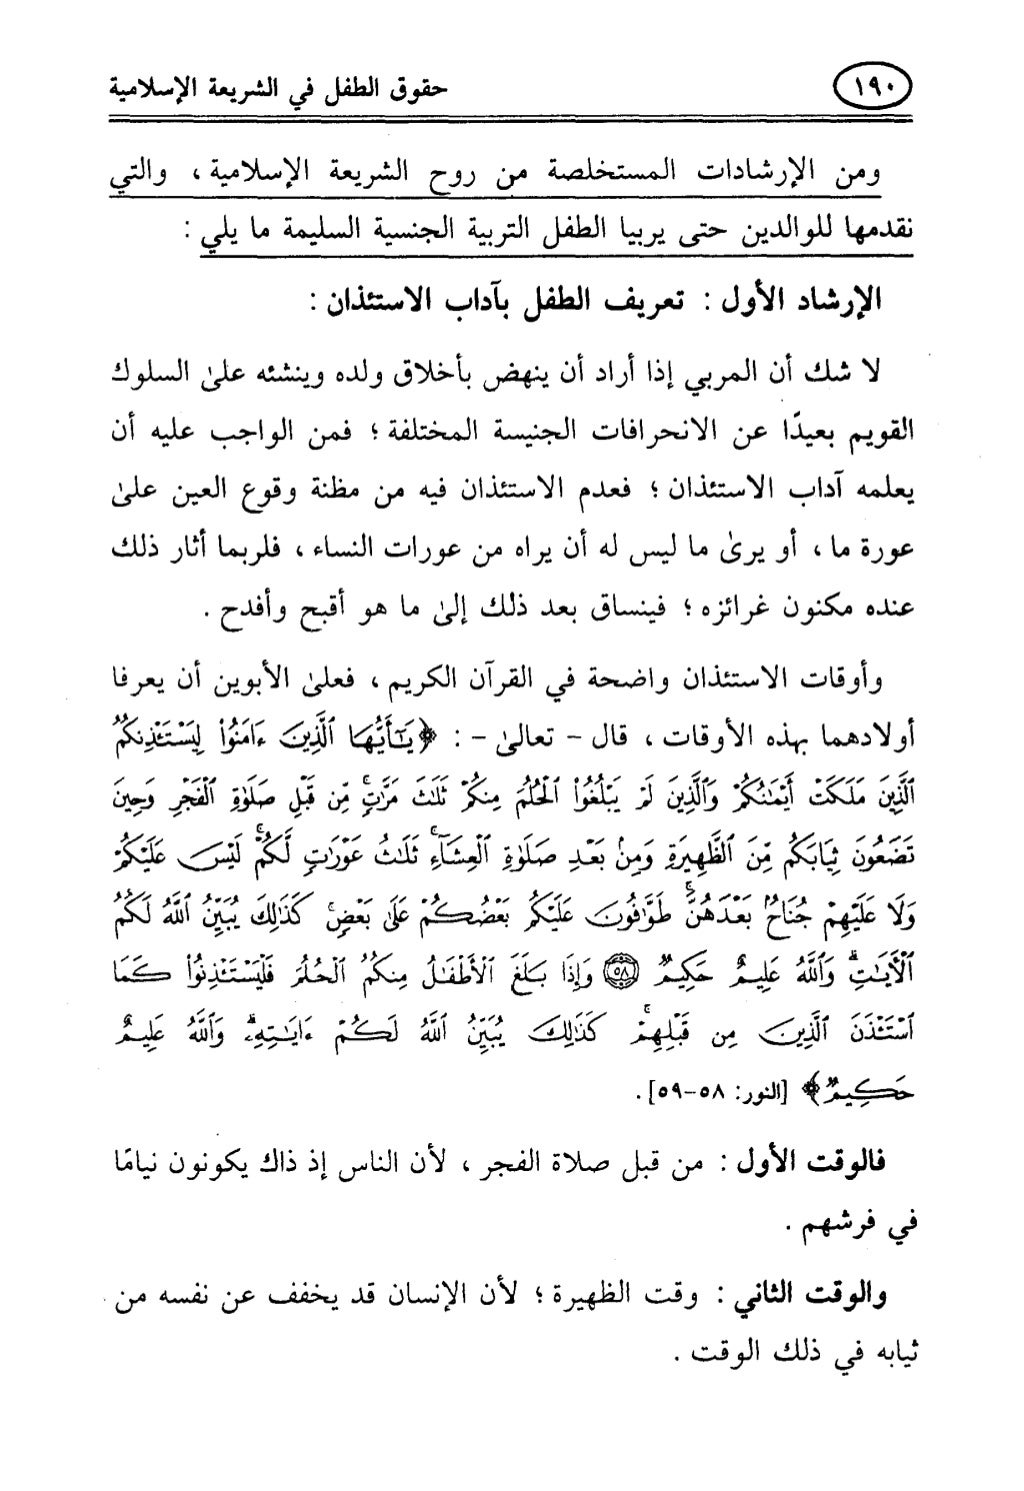 ١٩٠ حقوق الطفل في الشريعة الإسلامية
ومن الإرشادات المستخلصة من روح الشريعة الإسلامية ، والتي
نقدمها للوالدين حتى يربيا الطفل التربية الجنسية السليمة ما يلي :
الإرشاد الأول : تعريف الطفل بآداب الاستئذان :
لا شك أن المربي إذا أراد أن ينهض بأخلاق ولده وينشئه علىٰ السلوك
القويم بعيدًا عن الانحرافات الجنيسة المختلفة ؛ فمن الواجب عليه أن
يعلمه آداب الاستئذان ؛ فعدم الاستئذان فيه من مظنة وقوع العين علىٰ
عورة ما ، أو يرىٰ ما ليس له أن يراه من عورات النساء ، فلربما أثار ذلك
عنده مكنون غرائزه ؛ فينساق بعد ذلك إلىٰ ما هو أقبح وأفدح .
وأوقات الاستئذان واضحة في القرآن الكريم ، فعلىٰ الأبوين أن يعرفا
أولادهما بهذه الأوقات ، قال - تعالىٰ - : ﴿يَـٰٓأَيُّهَا ٱلَّذِينَ ءَامَنُوا۟ لِيَسْتَـْٔذِنكُمُ
ٱلَّذِينَ مَلَكَتْ أَيْمَـٰنُكُمْ وَٱلَّذِينَ لَمْ يَبْلُغُوا۟ ٱلْحُلُمَ مِنكُمْ ثَلَـٰثَ مَرَّٰتٍۢ ۚ مِّن قَبْلِ صَلَوٰةِ ٱلْفَجْرِ وَحِينَ
تَضَعُونَ ثِيَابَكُم مِّنَ ٱلظَّهِيرَةِ وَمِنۢ بَعْدِ صَلَوٰةِ ٱلْعِشَآءِ ۚ ثَلَـٰثُ عَوْرَٰتٍۢ لَّكُمْ ۚ لَيْسَ عَلَيْكُمْ
وَلَا عَلَيْهِمْ جُنَاحٌۢ بَعْدَهُنَّ ۚ طَوَّٰفُونَ عَلَيْكُم بَعْضُكُمْ عَلَىٰ بَعْضٍۢ ۚ كَذَٰلِكَ يُبَيِّنُ ٱللَّهُ لَكُمُ
ٱلْـَٔايَـٰتِ ۗ وَٱللَّهُ عَلِيمٌ حَكِيمٌۭ ۝٥٨ وَإِذَا بَلَغَ ٱلْأَطْفَـٰلُ مِنكُمُ ٱلْحُلُمَ فَلْيَسْتَـْٔذِنُوا۟ كَمَا
ٱسْتَـْٔذَنَ ٱلَّذِينَ مِن قَبْلِهِمْ ۚ كَذَٰلِكَ يُبَيِّنُ ٱللَّهُ لَكُمْ ءَايَـٰتِهِۦ ۗ وَٱللَّهُ عَلِيمٌ
حَكِيمٌۭ﴾ [النور: ٥٨-٥٩] .
فالوقت الأول : من قبل صلاة الفجر ، لأن الناس إذ ذاك يكونون نيامًا
في فرشهم .
والوقت الثاني : وقت الظهيرة ؛ لأن الإنسان قد يخفف عن نفسه من
ثيابه في ذلك الوقت .